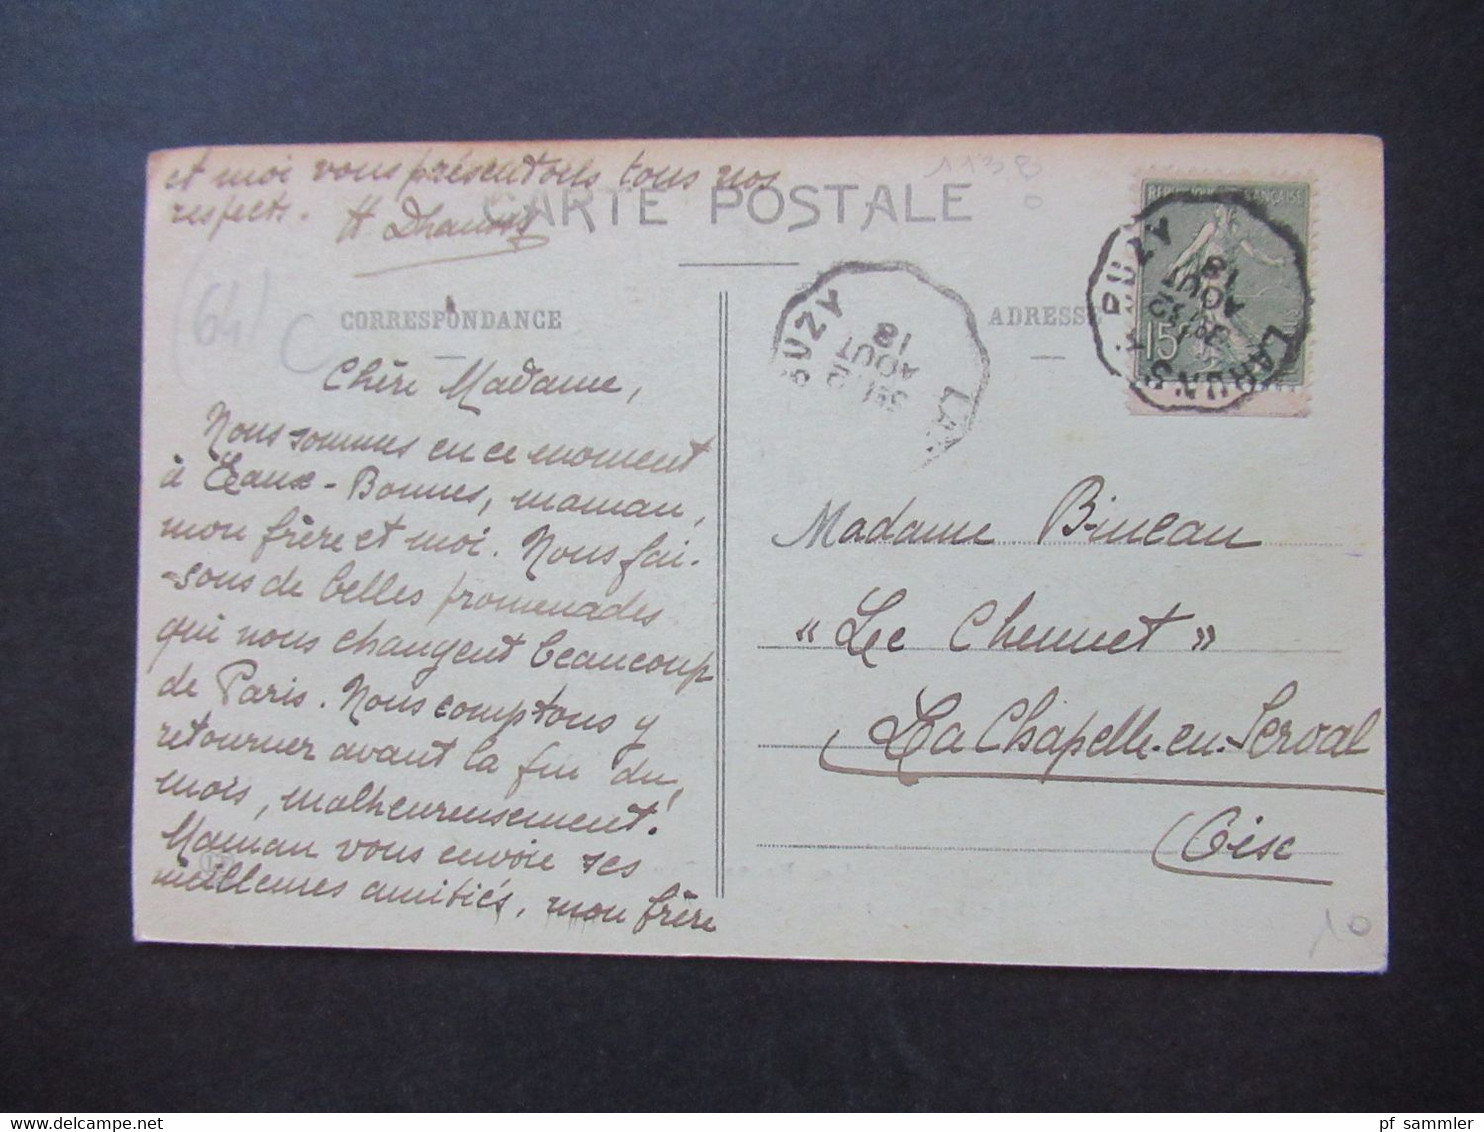 et moi vous présentons tous nos
respects.
CARTE POSTALE
1138
0
(64)
C
CORRESPONDANCE
ADRESSE
Chère Madame,
Nous sommes en ce moment
à Eaux-Bonnes, maman,
mon frère et moi. Nous fai-
sons de belles promenades
qui nous changent beaucoup
de Paris. Nous comptons y
retourner avant la fin du
mois, malheureusement!
Maman vous envoie ses
meilleures amitiés, mon frère
BUZY
18
AOUT
LA
RÉPUBLIQUE FRANÇAISE
15
LARUNS A BUZY
18
AOUT
Madame Bineau
"Le Chennet"
La Chapelle-en-Serval
Oise
10
pf sammler